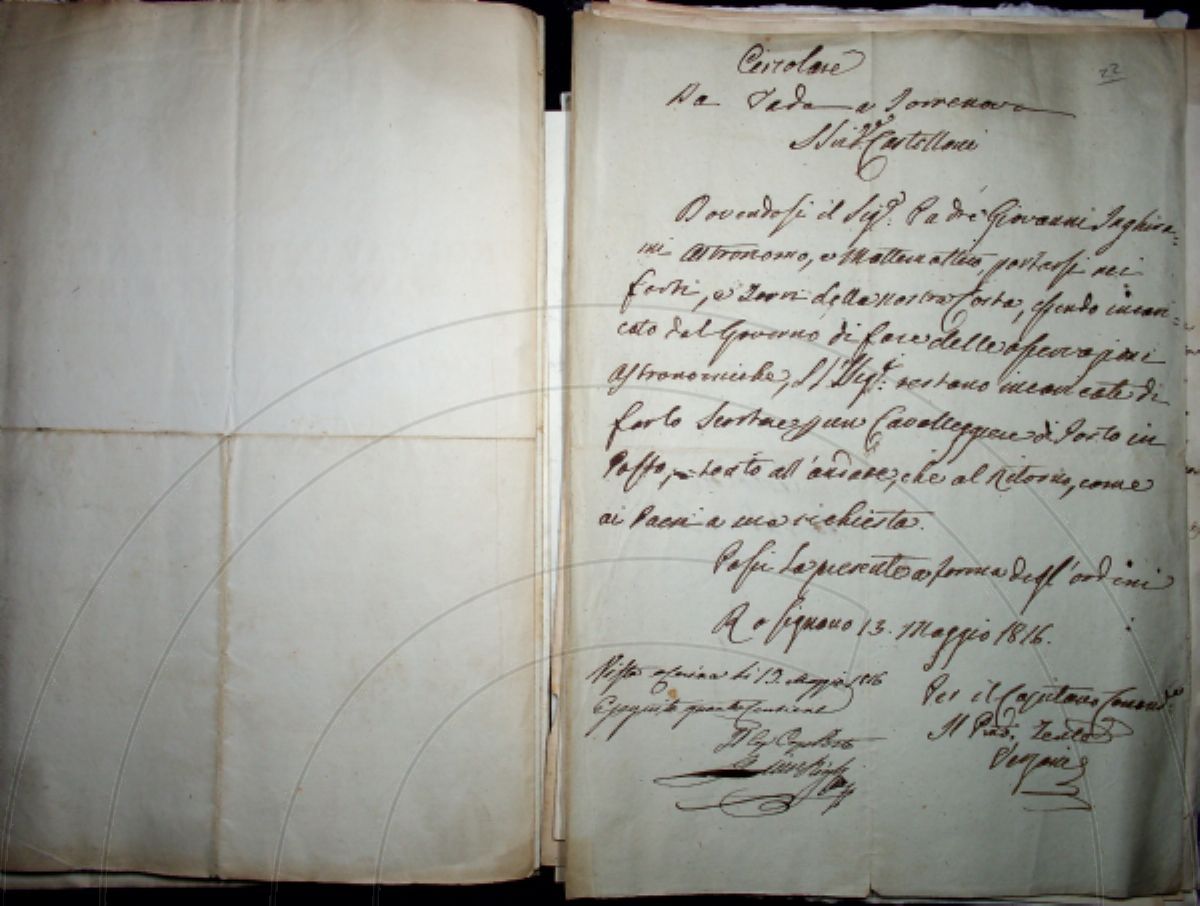 22
Circolare
Da Vada a Torrenova
SSri Castellani
Dovendosi il Sigr. Padre Giovanni Inghira=
mi Astronomo, e Mattematico portarsi nei
forti, e Torri della nostra Costa, essendo incari=
cato dal Governo di fare delle operazioni
Astronomiche, SSri Sigr. restano incaricate di
farlo Scortare un Cavalleggiere di Posto in
Posto, tanto all'andare, che al Ritorno, come
ai Paesi a sua richiesta.
Passi La presente a forma degl'ordini
Rosignano 13. Maggio 1816.
Visto Maggio 1816
Eseguito quanto contiene
Per il Capitano Comand.te
Il